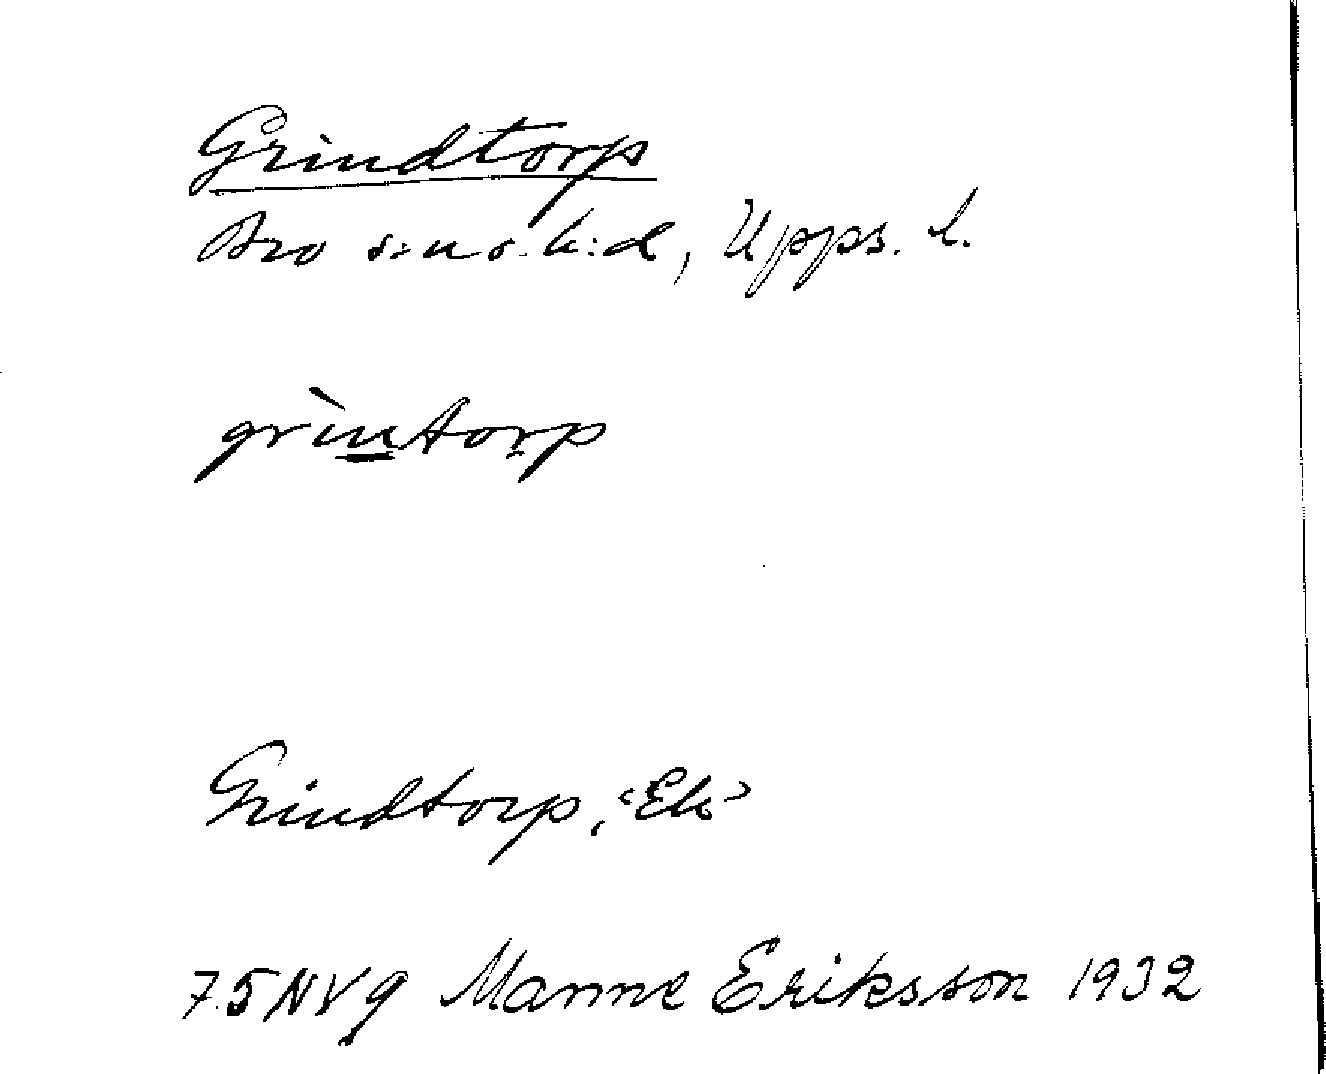 Grindtorp
Bro s:n o. h:d, Upps. l.
grìntorp
Grindtorp, <Ek>
75NVg Manne Eriksson 1932